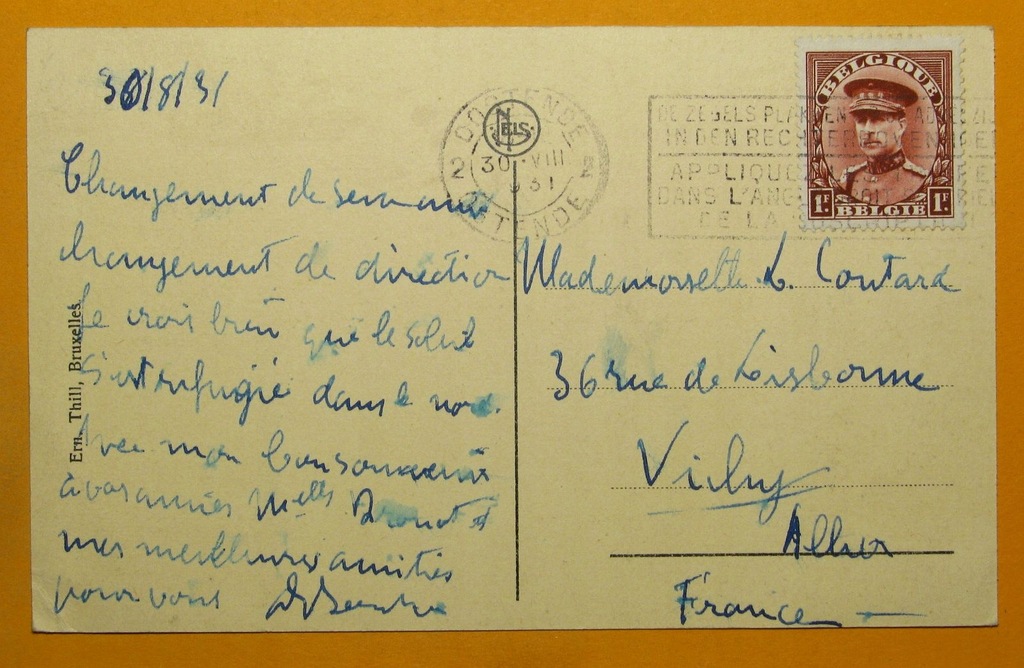 30/8/31
Changement de semaine
changement de direction
Je crois bien que le soleil
s'est refugié dans le nord.
Avec mon bon souvenir
à vos amies Melles et
mes meilleures amitiés
pour vous
Ern. Thill, Bruxelles
NELS
OOSTENDE
2 30 VIII
1931
OSTENDE
DE ZEGELS PLAKKEN
IN DEN RECHTERBOVEN
APPLIQUEZ
DANS L'ANGLE
DE LA
BELGIQUE
1F BELGIË 1F
Mademoiselle L. Contard
36 rue de Lisbonne
Vichy
Allier
France